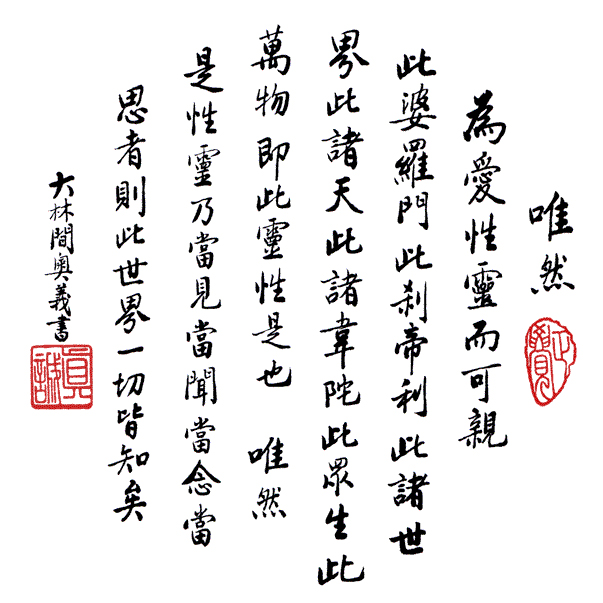 唯然
正覺
為愛性靈而可親
此婆羅門此刹帝利此諸世
界此諸天此諸韋陀此眾生此
萬物即此靈性是也 唯然
是性靈乃當見當聞當念當
思者則此世界一切皆知矣
大林間奧義書
真誠